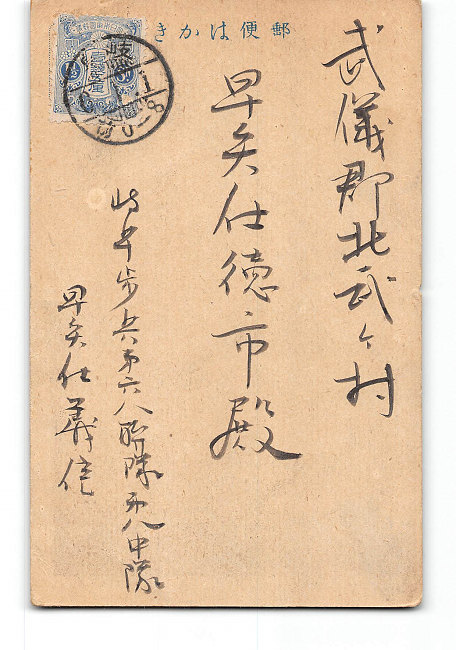 郵便はかき
武儀郡北武ヶ村
早矢仕徳市殿
岐阜歩兵第六八聯隊第八中隊
早矢仕義信
岐